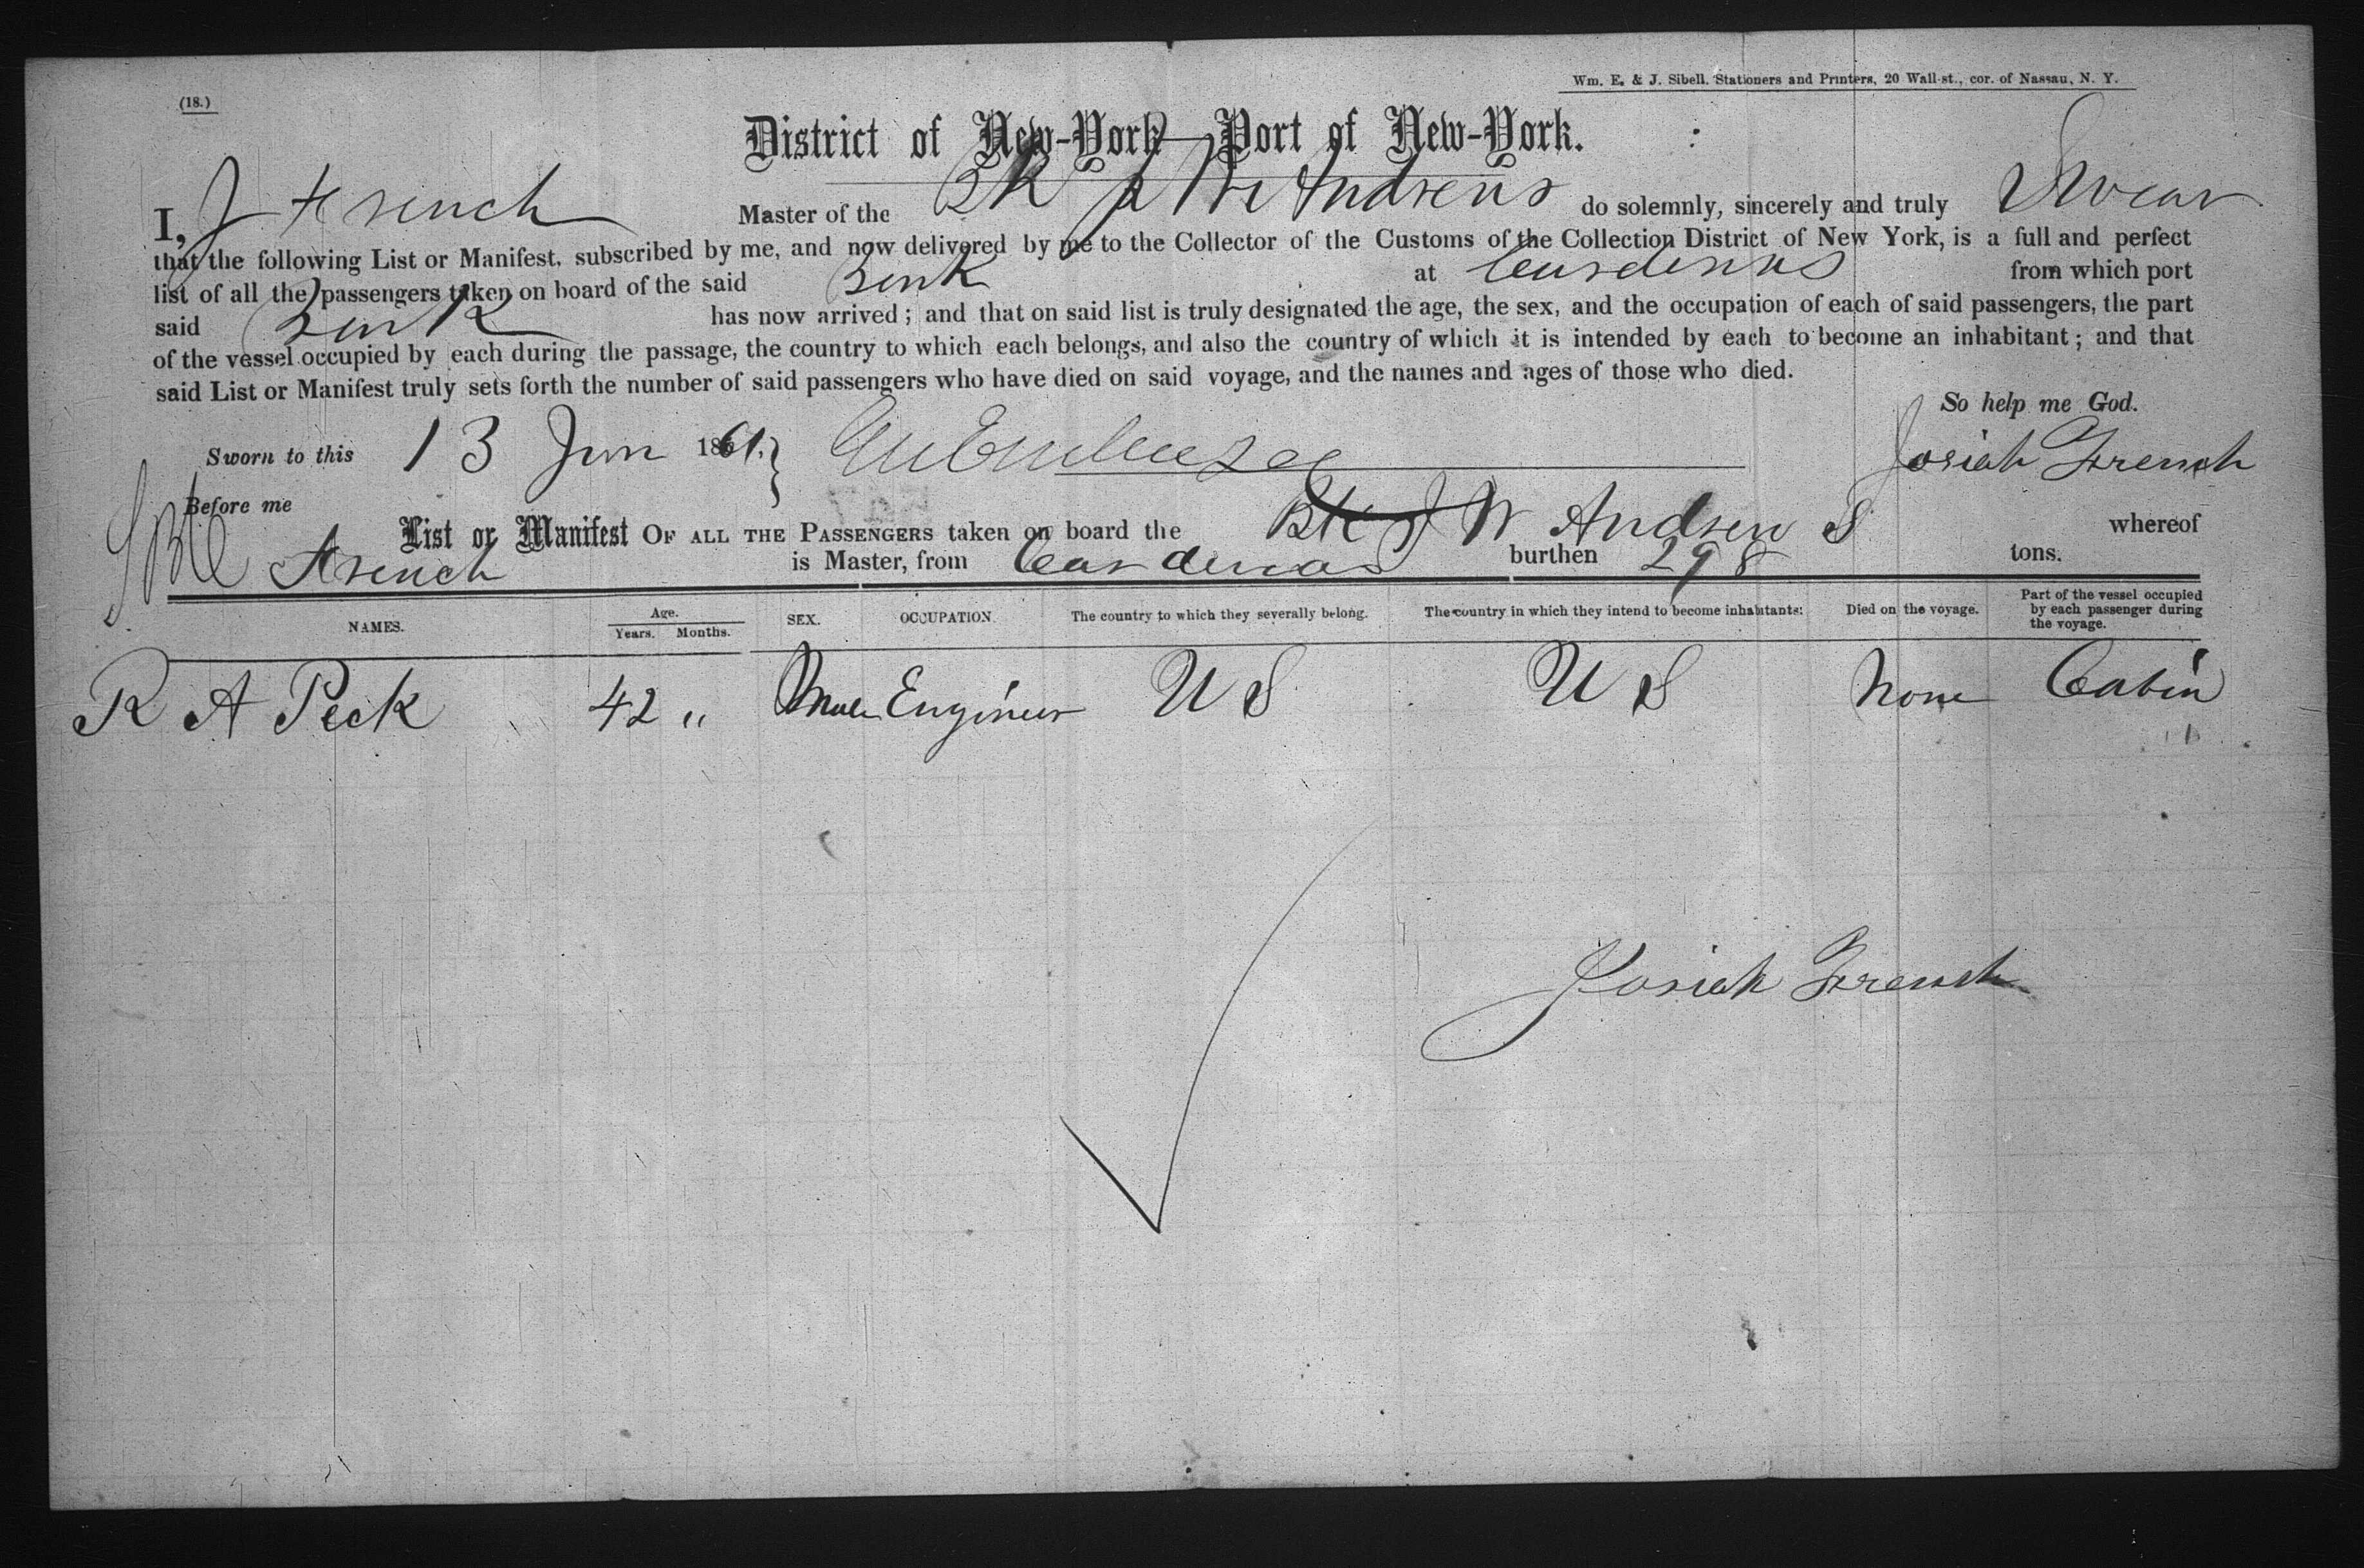 (18.)
Wm. E. & J. Sibell, Stationers and Printers, 20 Wall-st., cor. of Nassau, N. Y.
District of New-York—Port of New-York.
I, J French Master of the Bk J W Andrews do solemnly, sincerely and truly Swear
that the following List or Manifest, subscribed by me, and now delivered by me to the Collector of the Customs of the Collection District of New York, is a full and perfect
list of all the passengers taken on board of the said Bark at Cardenas from which port
said Bark has now arrived; and that on said list is truly designated the age, the sex, and the occupation of each of said passengers, the part
of the vessel occupied by each during the passage, the country to which each belongs, and also the country of which it is intended by each to become an inhabitant; and that
said List or Manifest truly sets forth the number of said passengers who have died on said voyage, and the names and ages of those who died.
So help me God.
Sworn to this 13 Jun 1861. Josiah French
Before me
List or Manifest OF ALL THE PASSENGERS taken on board the Bk J W Andrews whereof
French is Master, from Cardenas burthen 298 tons.
NAMES. Age. Years. Months. SEX. OCCUPATION. The country to which they severally belong. The country in which they intend to become inhabitants: Died on the voyage. Part of the vessel occupied by each passenger during the voyage.
R A Peck 42 " Male Engineer U S U S None Cabin
Josiah French